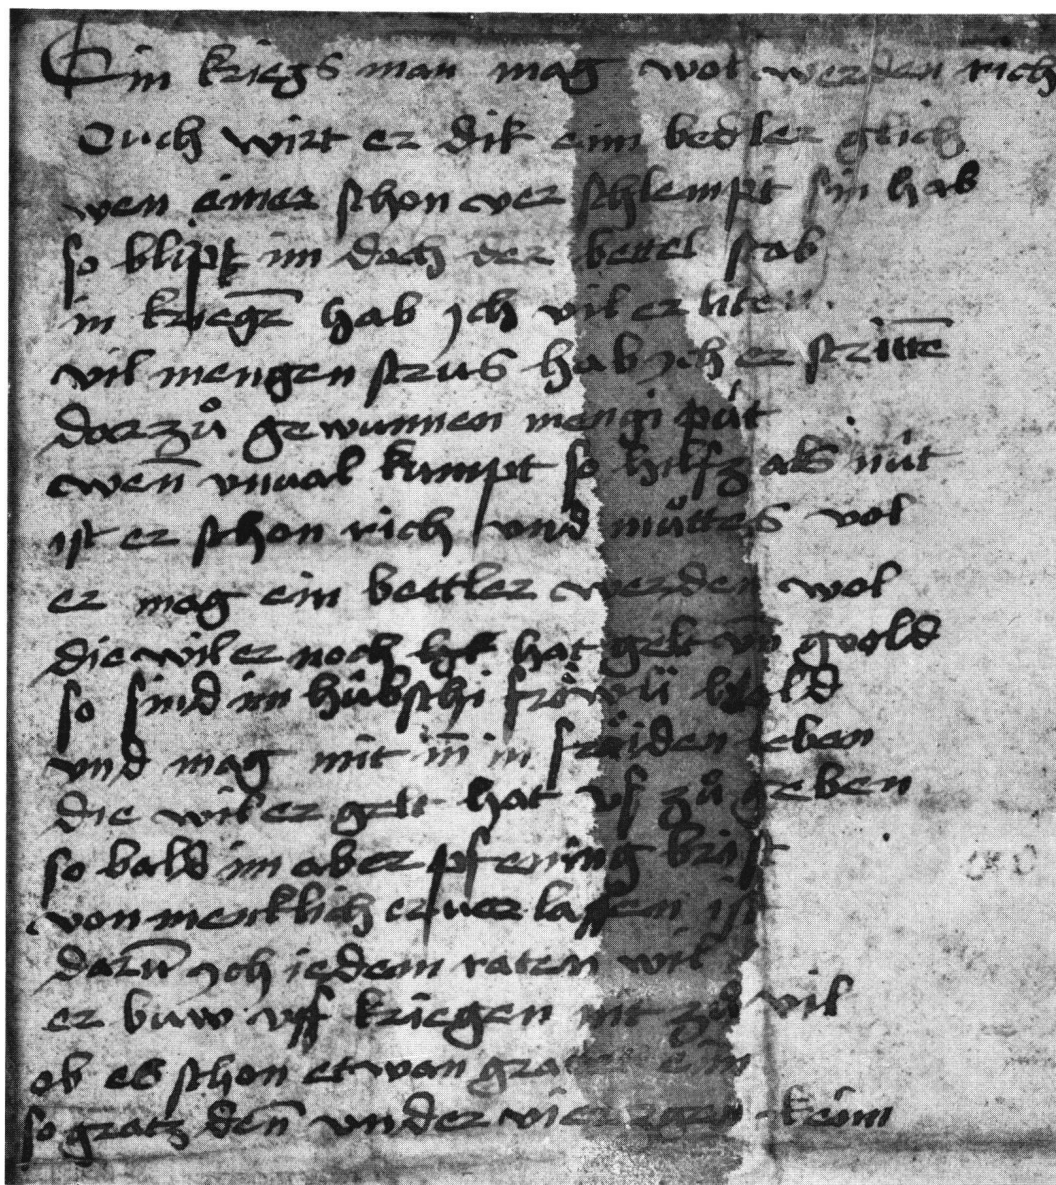 Ein kriegs man mag wol werden rich
Ouch wirt er dik eim bedler glich
wen einer schon verschlempt sin hab
so blipt im doch der bettel stab
in kriegē hab ich vil erliten
vil mengen strus hab ich erstrittē
darzů gewunnen mengi püt
wen̄ vnual kumpt so hilfz als nüt
ist er schon rich vnd můttes vol
er mag ein bettler werden wol
die wil er noch hat gelt vn̄ gold
so sind im hübschi fröwli hold
vnd mag mit in̄ in fröiden leben
die wil er gelt hat vs zů geben
so bald im aber pfening brist
von mencklich er verlassen ist
darum̄ ich iedem raten wil
er buw vff kriegen nit zů vil
ob es schon etwan grate eim
so gratz den̄ vnder viertzgen keim